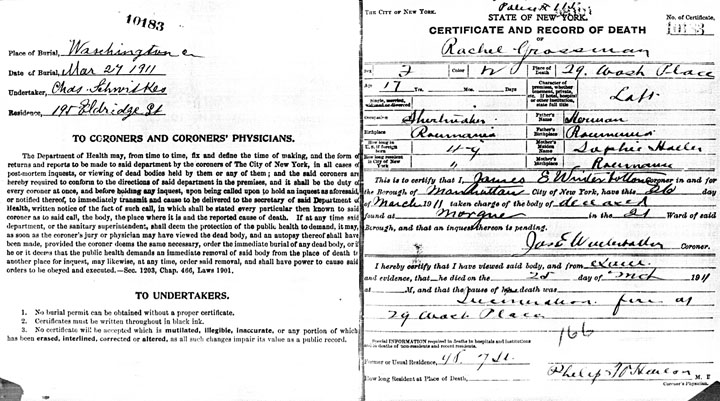 10183
Place of Burial, Washington C
Date of Burial, Mar 27 1911
Undertaker, Chas. Schwitkes
Residence, 195 Eldridge St
TO CORONERS AND CORONERS' PHYSICIANS.
The Department of Health may, from time to time, fix and define the time of making, and the form of
returns and reports to be made to said department by the coroners of The City of New York, in all cases of
post-mortem inquests, or viewing of dead bodies held by them or any of them; and the said coroners are
hereby required to conform to the directions of said department in the premises, and it shall be the duty of
every coroner at once, and before holding any inquest, upon being called upon to hold an inquest as aforesaid
or notified thereof, to immediately transmit and cause to be delivered to the secretary of said Department of
Health, written notice of the fact of such call, in which shall be stated every particular then known to said
coroner as to said call, the body, the place where it is and the reported cause of death. If at any time said
department, or the sanitary superintendent, shall deem the protection of the public health to demand, it may,
as soon as the coroner's jury or physician may have viewed the dead body, and an autopsy thereof shall have
been made, provided the coroner deems the same necessary, order the immediate burial of any dead body, or if
he or it deems that the public health demands an immediate removal of said body from the place of death to
another place for inquest, may likewise, at any time, order said removal, and shall have power to cause said
orders to be obeyed and executed.—Sec. 1203, Chap. 466, Laws 1901.
TO UNDERTAKERS.
1. No burial permit can be obtained without a proper certificate.
2. Certificates must be written throughout in black ink.
3. No certificate will be accepted which is mutilated, illegible, inaccurate, or any portion of which
has been erased, interlined, corrected or altered, as all such changes impair its value as a public record.
THE CITY OF NEW YORK.
STATE OF NEW YORK.
No. of Certificate,
CERTIFICATE AND RECORD OF DEATH
10183
OF
Rachel Grossman
Sex F Color W Place of Death 29 Wash Place
Age 17 Yrs. Mos. Days
Character of premises, whether tenement, private, etc. If hotel, hospital or other institution, state full title Loft
Single, married, widowed or divorced
Occupation Father's Name Herman
Birthplace Roumania Father's Birthplace Roumania
How long in U. S. if foreign born Mother's Name Sophie
How long resident in City of New York " Mother's Birthplace Roumania
This is to certify that I, James E Winterbottom Coroner in and for
the Borough of Manhattan City of New York, have this 26 day
of March 1911 taken charge of the body of deceased
found at Morgue in the Ward of said
Borough, and that an inquest thereon is pending.
Jas E Winterbottom Coroner.
I hereby certify that I have viewed said body, and from
and evidence, that he died on the 25 day of Mch 1911
at M, and that the cause of death was
Incineration fire at
29 Wash Place
166
Special INFORMATION required in deaths in hospitals and institutions
and in deaths of non-residents and recent residents.
Former or Usual Residence, 48. 7 St.
How long Resident at Place of Death,
Philip F O'Hanlon M. D
Coroner's Physician.